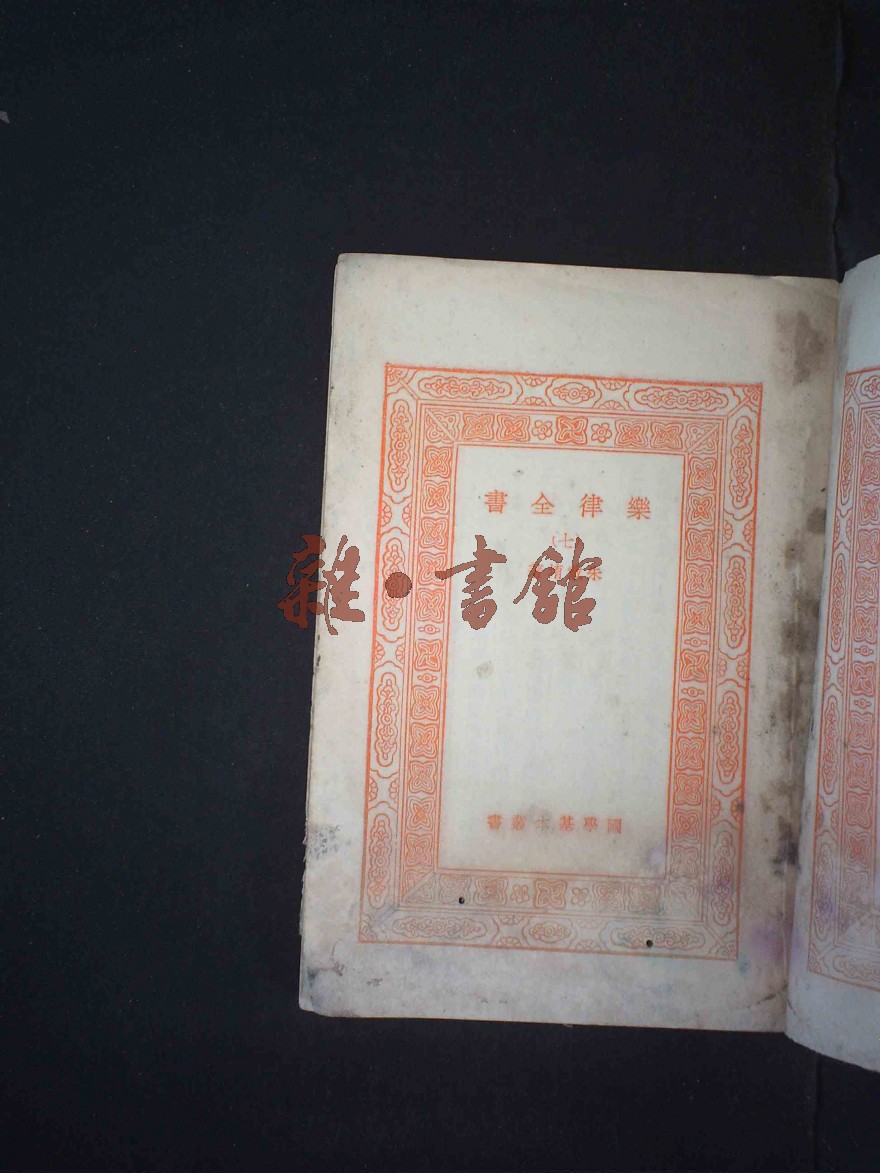 樂律全書
(七)
雜·書館
國學基本叢書